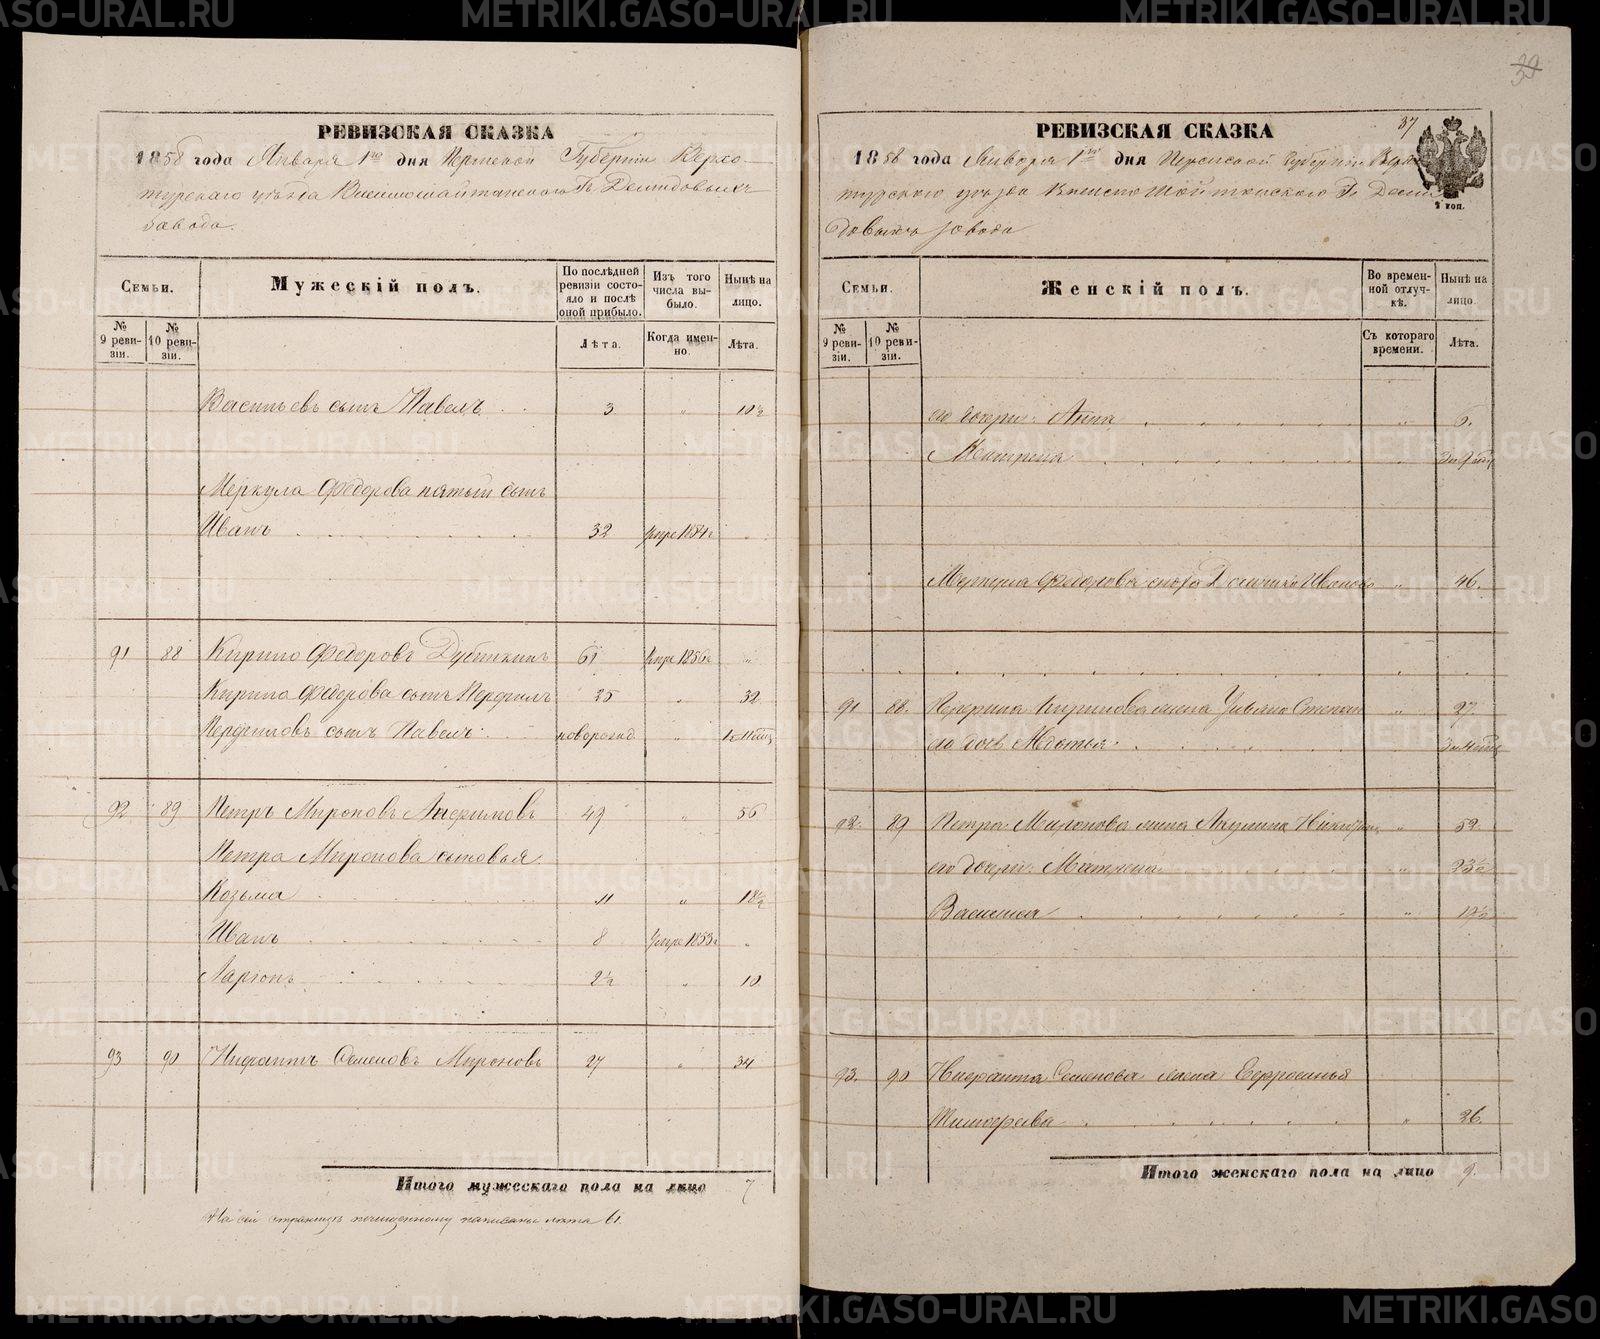 РЕВИЗСКАЯ СКАЗКА
1858 года Января 1го дня Пермской Губернiи Верхо-
турскаго уѣзда Висимошайтанскаго Гг Демидовыхъ
завода.
Семьи.
Мужескiй полъ.
По послѣдней ревизiи состояло и послѣ оной прибыло.
Изъ того числа выбыло.
Нынѣ на лицо.
№ 9 ревизiи.
№ 10 ревизiи.
Лѣта.
Когда именно.
Лѣта.
Васильевъ сынъ Павелъ 3 " 10½
Меркула Федорова пятый сынъ
Иванъ 32 умре 1854г "
91 88 Кирило Федоровъ 61 умре 1856г "
Кирила Федорова сынъ Перфилъ 25 " 32
Перфиловъ сынъ Павелъ новорожд "
92 89 Петръ Мироновъ Анфимовъ 49 " 56
Петра Миронова сыновья
Козьма 11 " 18½
Иванъ 8 умре 1853г "
Ларiонъ 2½ " 10
93 90 Нифантъ Семеновъ Мироновъ 27 " 34
Итого мужескаго пола на лицо 7
На сей страницѣ по чищенному написаны лѣта 61.
39
37
РЕВИЗСКАЯ СКАЗКА
1858 года Января 1го дня Пермской Губернiи Верхо-
турскаго уѣзда Висимо Шайтанскаго Гг Деми
довыхъ завода
Семьи.
Женскiй полъ.
Во временной отлучкѣ.
Нынѣ на лицо.
№ 9 ревизiи.
№ 10 ревизiи.
Съ котораго времени.
Лѣта.
его дочери: Анна " 6.
Матрена "
Меркула Федорова сноха Иванова " 46.
91 88. Перфила Кирилова жена Ульяна Степан " 27.
его дочь Авдотья
92. 89 Петра Миронова жена Акулина " 52.
его дочери: Матрена " 23½
Васиlиса " 12½
93. 90 Нифанта Семенова жена Ефросинья
Тимофеева " 26.
Итого женскаго пола на лицо 9.
METRIKI.GASO-URAL.RU